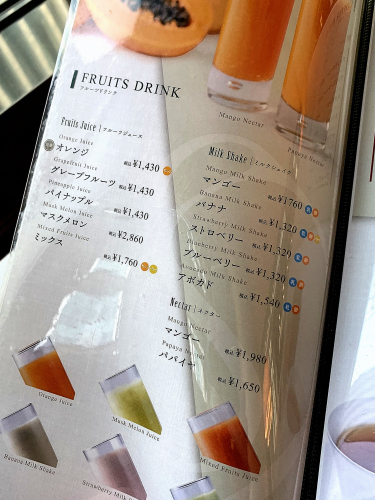 FRUITS DRINK
フルーツドリンク
Fruits Juice | フルーツジュース
Orange Juice
オレンジ 税込 ¥1,430
Grapefruit Juice
グレープフルーツ 税込 ¥1,430
Pineapple Juice
パイナップル 税込 ¥1,430
Musk Melon Juice
マスクメロン 税込 ¥2,860
Mixed Fruits Juice
ミックス 税込 ¥1,760
Mango Nectar
Papaya Nectar
Milk Shake | ミルクシェイク
Mango Milk Shake
マンゴー 税込 ¥1760
Banana Milk Shake
バナナ 税込 ¥1,320
Strawberry Milk Shake
ストロベリー 税込 ¥1,320
Blueberry Milk Shake
ブルーベリー 税込 ¥1,320
Avocado Milk Shake
アボカド 税込 ¥1,540
Nectar | ネクター
Mango Nectar
マンゴー 税込 ¥1,980
Papaya Nectar
パパイヤ 税込 ¥1,650
Orange Juice
Musk Melon Juice
Mixed Fruits Juice
Banana Milk Shake
Strawberry Milk